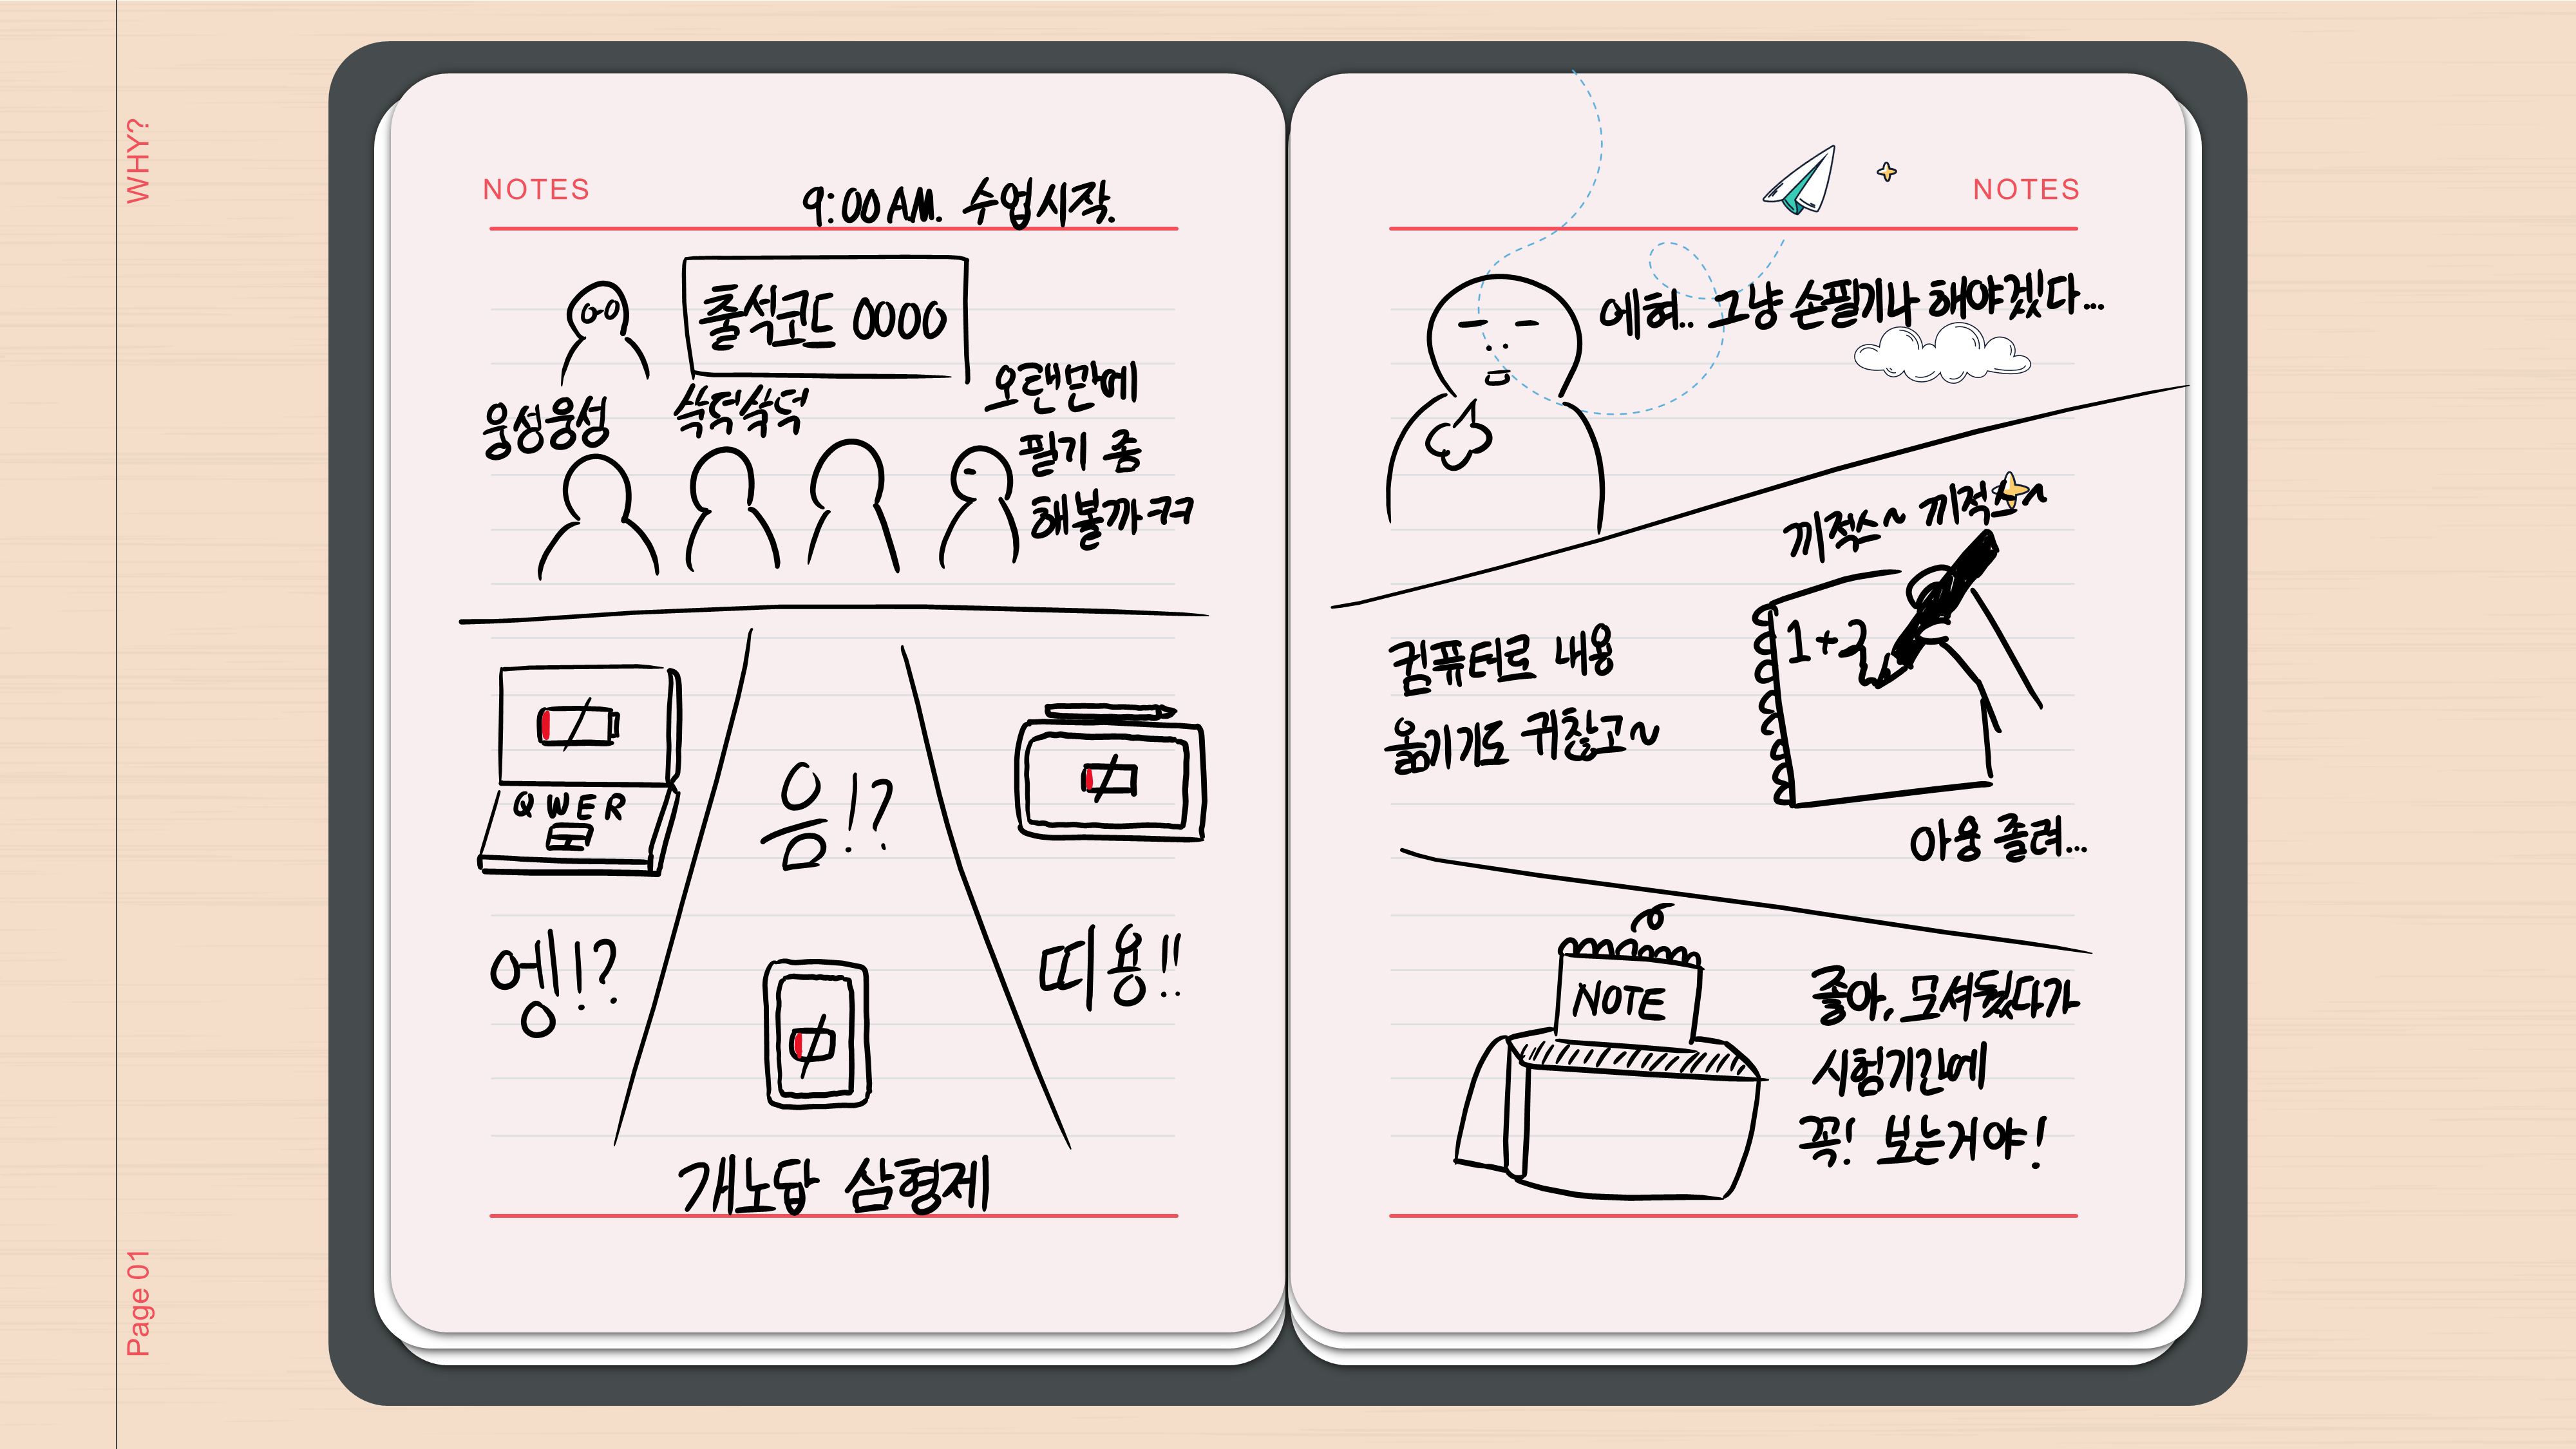 WHY?
Page 01
NOTES
9:00 AM. 수업시작.
출석코드 0000
웅성웅성
쑥덕쑥덕
오랜만에
필기 좀
해볼까 ㅋㅋ
QWER
엥!?
음!?
띠용!!
개노답 삼형제
NOTES
에혀.. 그냥 손필기나 해야겠다...
끼적스~ 끼적스~
컴퓨터로 내용
옮기기도 귀찮고~
1+2
아웅 졸려...
NOTE
좋아, 모셔뒀다가
시험기간에
꼭! 보는거야!